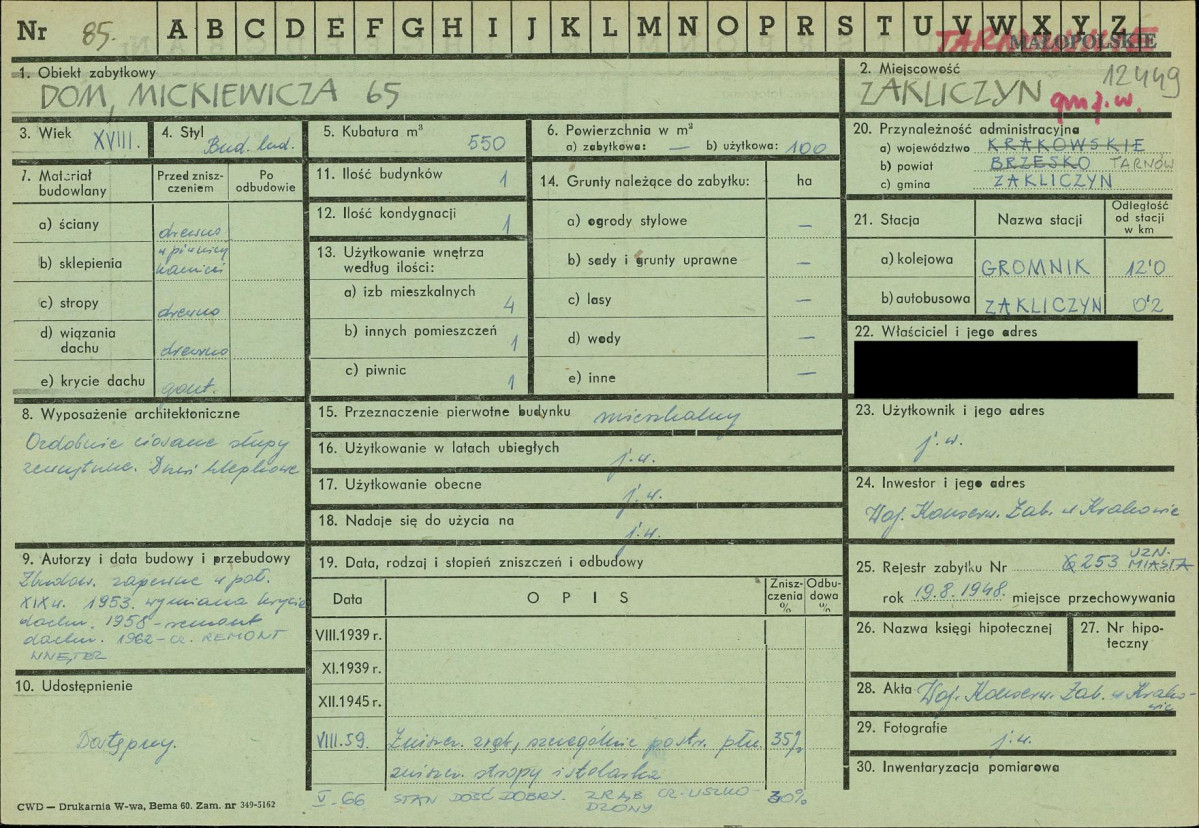 Nr 85. A B C D E F G H I J K L M N O P R S T U V W X Y Z
MAŁOPOLSKIE
1. Obiekt zabytkowy
DOM, MICKIEWICZA 65
2. Miejscowość 12449
ZAKLICZYN gm. j.w.
3. Wiek XVIII.
4. Styl Bud. lud.
5. Kubatura m³ 550
6. Powierzchnia w m²
a) zabytkowa: — b) użytkowa: 100
20. Przynależność administracyjna
a) województwo KRAKOWSKIE
b) powiat BRZESKO TARNÓW
c) gmina ZAKLICZYN
7. Materiał budowlany
Przed zniszczeniem
Po odbudowie
a) ściany drewno
b) sklepienia w piwnicy kamień
c) stropy drewno
d) wiązania dachu drewno
e) krycie dachu gont.
11. Ilość budynków 1
12. Ilość kondygnacji 1
13. Użytkowanie wnętrza
według ilości:
a) izb mieszkalnych 4
b) innych pomieszczeń 1
c) piwnic 1
14. Grunty należące do zabytku: ha
a) ogrody stylowe —
b) sady i grunty uprawne —
c) lasy —
d) wody —
e) inne —
21. Stacja
Nazwa stacji
Odległość
od stacji
w km
a) kolejowa GROMNIK 12'0
b) autobusowa ZAKLICZYN 0'2
22. Właściciel i jego adres
8. Wyposażenie architektoniczne
Ozdobnie ciosane słupy
Drzwi klepkowe
15. Przeznaczenie pierwotne budynku mieszkalny
16. Użytkowanie w latach ubiegłych j.w.
17. Użytkowanie obecne j.w.
18. Nadaje się do użycia na j.w.
23. Użytkownik i jego adres
j.w.
24. Inwestor i jego adres
Woj. Konserw. Zab. w Krakowie
9. Autorzy i data budowy i przebudowy
Zbudow. zapewne w poł.
XIX w. 1953. wymiana krycia
dachu. 1958 - remont
dachu. 1962 - CZ. REMONT
WNĘTRZ
19. Data, rodzaj i stopień zniszczeń i odbudowy
Data
OPIS
Zniszczenia %
Odbudowa %
VIII.1939 r.
XI.1939 r.
XII.1945 r.
VIII.59. Zniszcz. zrąb, szczególnie po str. płn. 35%
zniszcz. stropy i stolarka
V.66 STAN DOŚĆ DOBRY. ZRĄB CZ. USZKO- 30%
DZONY
25. Rejestr zabytku Nr 253 UZN. MIASTA
rok 19.8.1948. miejsce przechowywania
26. Nazwa księgi hipotecznej
27. Nr hipoteczny
28. Akta Woj. Konserw. Zab. w Krakowie
29. Fotografie
j.w.
30. Inwentaryzacja pomiarowa
10. Udostępnienie
Dostępny.
CWD — Drukarnia W-wa, Bema 60. Zam. nr 349-5162